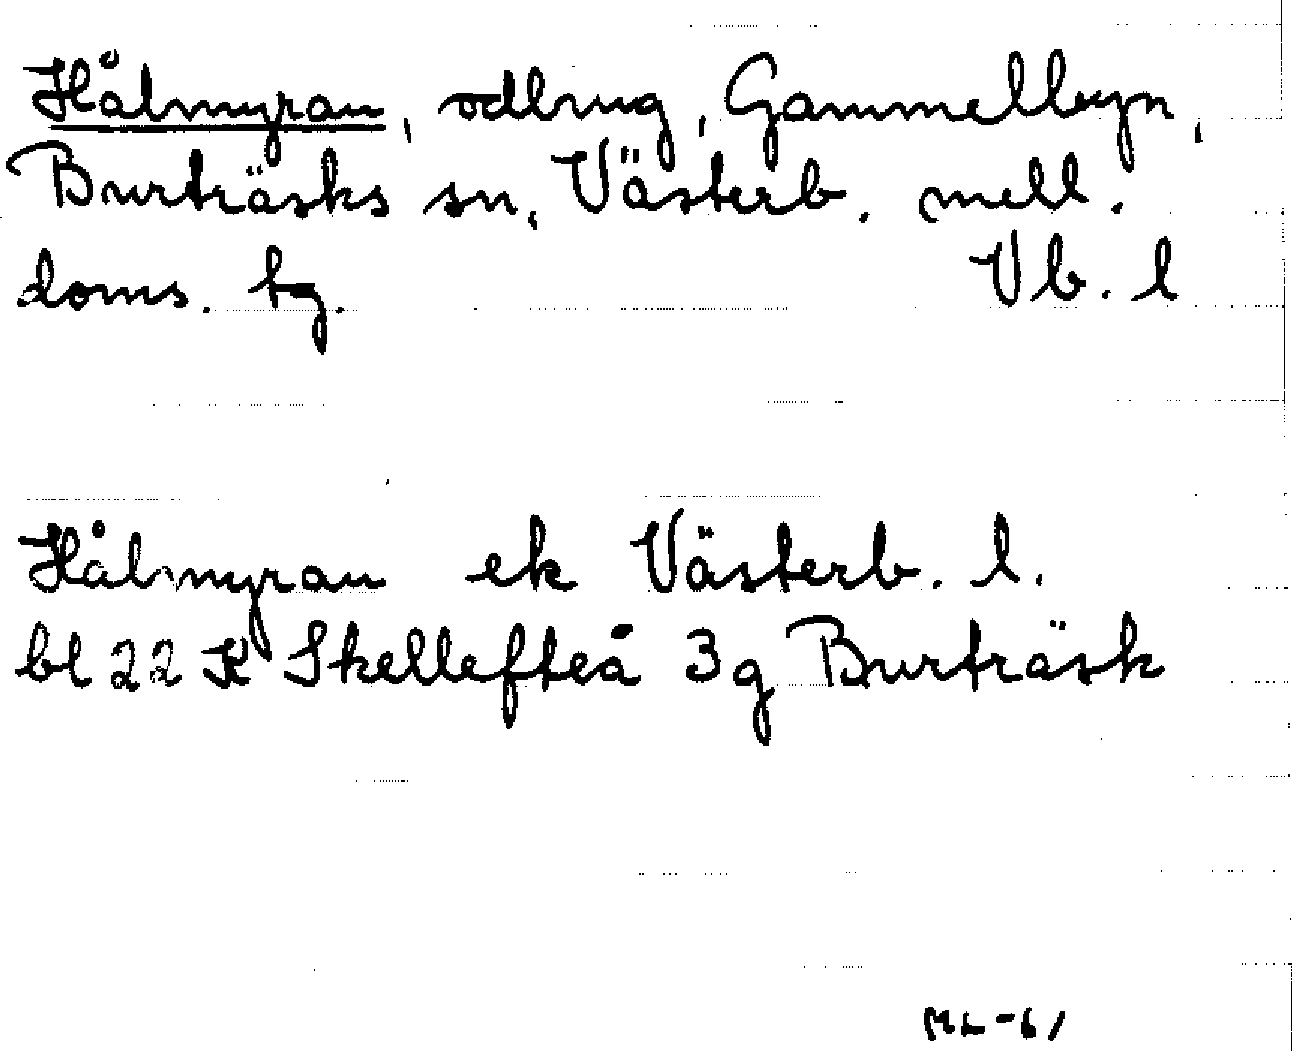 Hålmyran, odling, Gammelbyn,
Burträsks sn, Västerb. mell.
doms. hg.
Vb. l
Hålmyran ek Västerb. l.
bl 22 K Skellefteå 3g Burträsk
ML-61